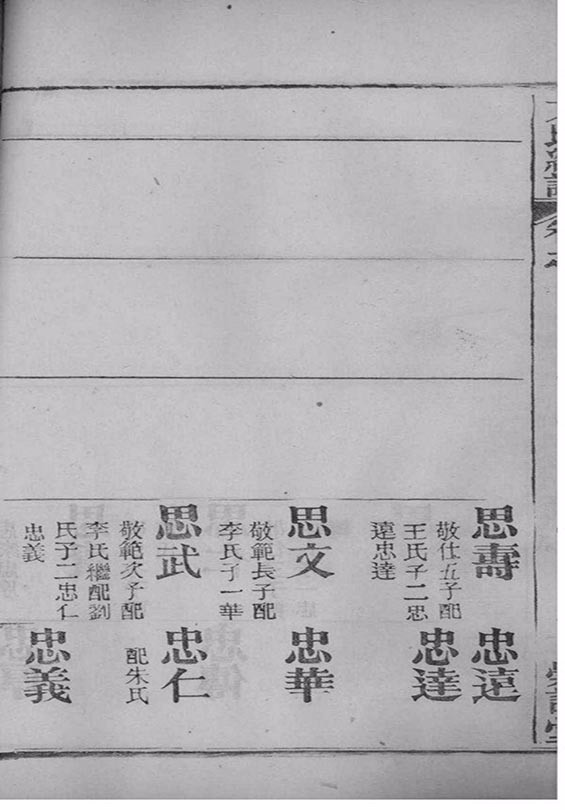 思壽
敬仕五子配
王氏子二忠
遠忠達
思文
敬範長子配
李氏子一華
思武
敬範次子配
李氏繼配劉
氏子二忠仁
忠義
忠遠
忠達
忠華
忠仁
配朱氏
忠義